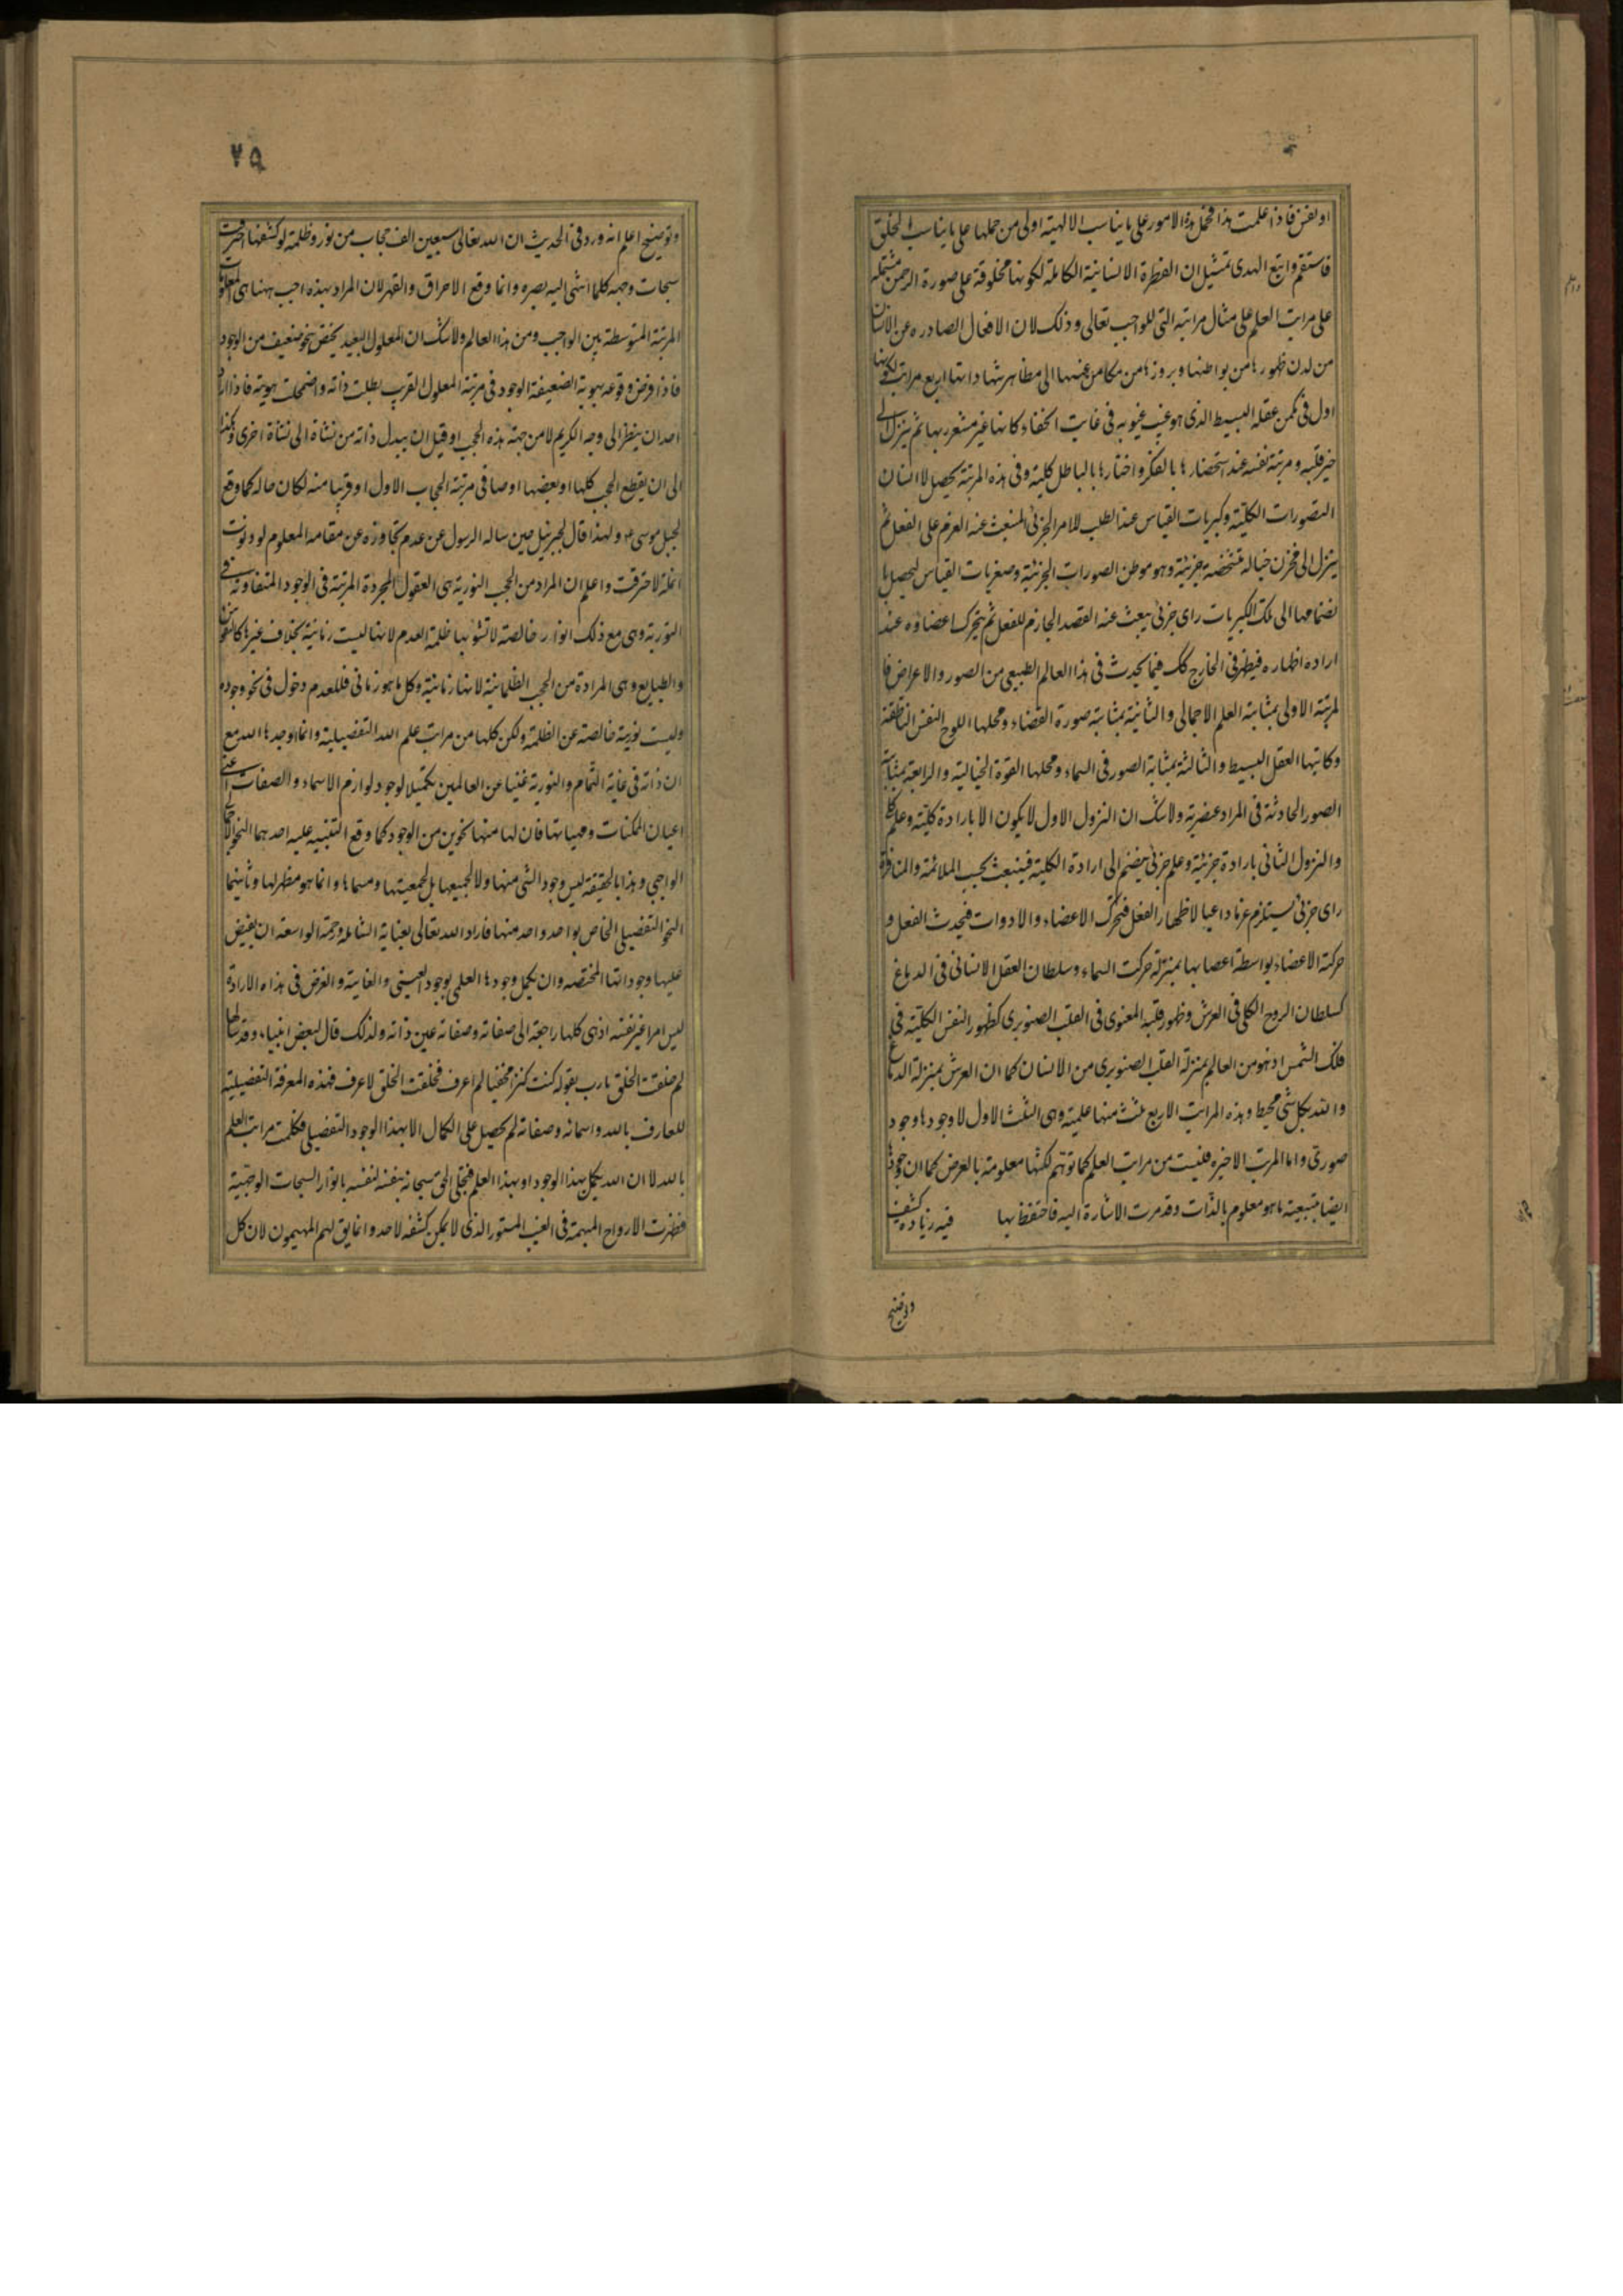 او نفس فاذا علمت هذا فحمل هذه الامور على ما يناسب الالهية اولى من حملها على ما يناسب الخلق
فاستقم واتبع الهدى تمثيل ان الفطرة الانسانية الكاملة لكونها مخلوقة على صورة الرحمن مشتملة
على مراتب العلم على مثال مراتبه التى للواجب تعالى وذلك لان الافعال الصادره عن الانسان
من لدن ظهورها من بواطنها وبروزها من مكامن غيبها الى مظاهر شهاداتها اربع مراتب لكونها
اول فى مكمن عقله البسيط الذى هو غيب غيوبه فى غايت الخفاء كانها غير مشعر بها ثم يتنزل الى
حيز قلبه ومرتبة نفسه عند استحضارها بالفكر واخطارها بالباطل كلية وفى هذه المرتبة يحصل لاانسان
التصورات الكلية وكبريات القياس عند الطلب للامر الجزئى المنبعث عنه العزم على الفعل ثم
يتنزل الى مخزن خياله متشخصة جزئية وهو موطن الصورات الجزئية وصغريات القياس ليحصل با
نضمامها الى تلك الكبريات راى جزئى يبعث عنه القصد الجازم للفعل ثم يتحرك اعضاؤه عند
اراده اظهاره فيظهر فى الخارج كك فيما يحدث فى هذا العالم الطبيعى من الصور والاعراض فا
لمرتبة الاولى بمثابته العلم الاجمالى والثانية بمثابته صورة القضاء ومحلها اللوح النفس الناطقة
وكاتبها العقل البسيط والثالثة بمثابة الصور فى السماء ومحلها القوة الخيالية والرابعة بمثابة
الصور الحادثة فى المراد عنصرية ولاشك ان النزول الاول لا يكون الا بارادة كلية وعلم كلى
والنزول الثانى بارادة جزئية وعلم جزئى ينضم الى ارادة الكلية فينبعث بحسب الملائمة والمنافرة
راى جزئى يستلزم عزما داعيا لاظهار الفعل فتحرك الاعضاء والادوات فيحدث الفعل و
حركة الاعضاء بواسطة اعصابها بمنزلة حركت السماء وسلطان العقل الانسانى فى الدماغ
كسلطان الروح الكلى فى العرش وظهور قلبه المعنوى فى القلب الصنوبرى كظهور النفس الكلية فى
فلك الشمس اذ هو من العالم بمنزلة القلب الصنوبرى من الانسان كما ان العرش بمنزلة الدماغ
والله بكل شئ محيط وهذه المراتب الاربع ثلث منها علمية وهى الثلث الاول لا وجودها وجود
صورى واما المرتب الاخيره فليست من مراتب العلم كما توهم لكنها معلومة بالعرض كما ان وجودها
ايضا بتبعية ما هو معلوم بالذات وقد مرت الاشارة اليه فاحتفظ بها فيه زياده كشف
وتوضيح
٧٥
وتوضيح اعلم انه ورد فى الحديث ان الله تعالى سبعين الف حجاب من نور وظلمة لو كشفها احرقت
سبحات وجهه كلما انتهى اليه بصره وانما وقع الاحراق والقهر لان المراد بهذه احجب ههنا هى المعلولات
المرتبة المتوسطة بين الواجب ومن هذا العالم ولاشك ان المعلول البعيد يختص بنحو ضعيف من الوجود
فاذا فرض وقوعه بهوية الضعيفة الوجود فى مرتبة المعلول القريب بطلت ذاته واضمحلت هويته فاذا اراد
احد ان ينظر الى وجه الكريم لا من جهة هذه الحجب او قيل ان يبدل ذاته من نشأة الى نشأة اخرى وهكذا
الى ان يقطع الحجب كلها او بعضها او صا فى مرتبة الحجاب الاول او قريبا منه لكان حاله كما وقع
لجبل موسى ع ولهذا قال لجبرئيل حين ساله الرسول عن عدم تجاوزه عن مقامه المعلوم لو دنوت
انملة لاحترقت واعلم ان المراد من الحجب النورية هى العقول المجردة المرتبة فى الوجود المتفاوتة فى
النورية وهى مع ذلك انوار خالصة لا تشوبها ظلمة العدم لانها ليست زمانية بخلاف غيرها كالنفوس
والطبايع وهى المرادة من الحجب الظلمانية لانها زمانية وكل ما هو زمانى فللعدم دخول فى نحو وجوده
وليست نورية خالصة عن الظلمة ولكن كلها من مراتب علم الله التفضيلية وانما اوجدها الله مع
ان ذاته فى غاية التمام والنورية غنيا عن العالمين تكميلا لوجود لوازم الاسماء والصفات اعنى
اعيان الممكنات ومهياتها فان لها منها نحوين من الوجود كما وقع التنبيه عليه احدهما النحو الاجمالى
الواجبى وهذا بالحقيقة ليس وجود الشئ منها ولا لجميعها بل لجمعيتها ومسماها وانما هو مظهر لها وثانيهما
النحو التفضيلى الخاص بواحد واحد منها فاراد الله تعالى بعناية الشاملة ورحمة الواسعة ان يفيض
عليها وجوداتها المختصه وان يكمل وجودها العلمى بوجود العينى والغاية والغرض فى هذا ه الارادة
ليس امرا غير نفسه اذ هى كلها راجعة الى صفاته وصفاته عين ذاته ولذلك قال لبعض انبياء وقد سالها
لم خلقت الخلق يارب بقوله كنت كنزا مخفيا لم اعرف فخلقت الخلق لاعرف فهذه المعرفة التفضيلية
للعارف بالله واسمائه وصفاته لم يحصل على الكمال الا بهذا الوجود التفضيلى فكلمت مراتب العلم
بالله لا ان الله يكمل بهذا الوجود او بهذا العلم فتجلى الحق سبحانه بنفسه لنفسه بانوار السبحات الوجهية
فظهرت الارواح المهيمة فى الغيب المستور الذى لا يمكن كشفه لاحد وانما يق لهم المهيمون لان كل